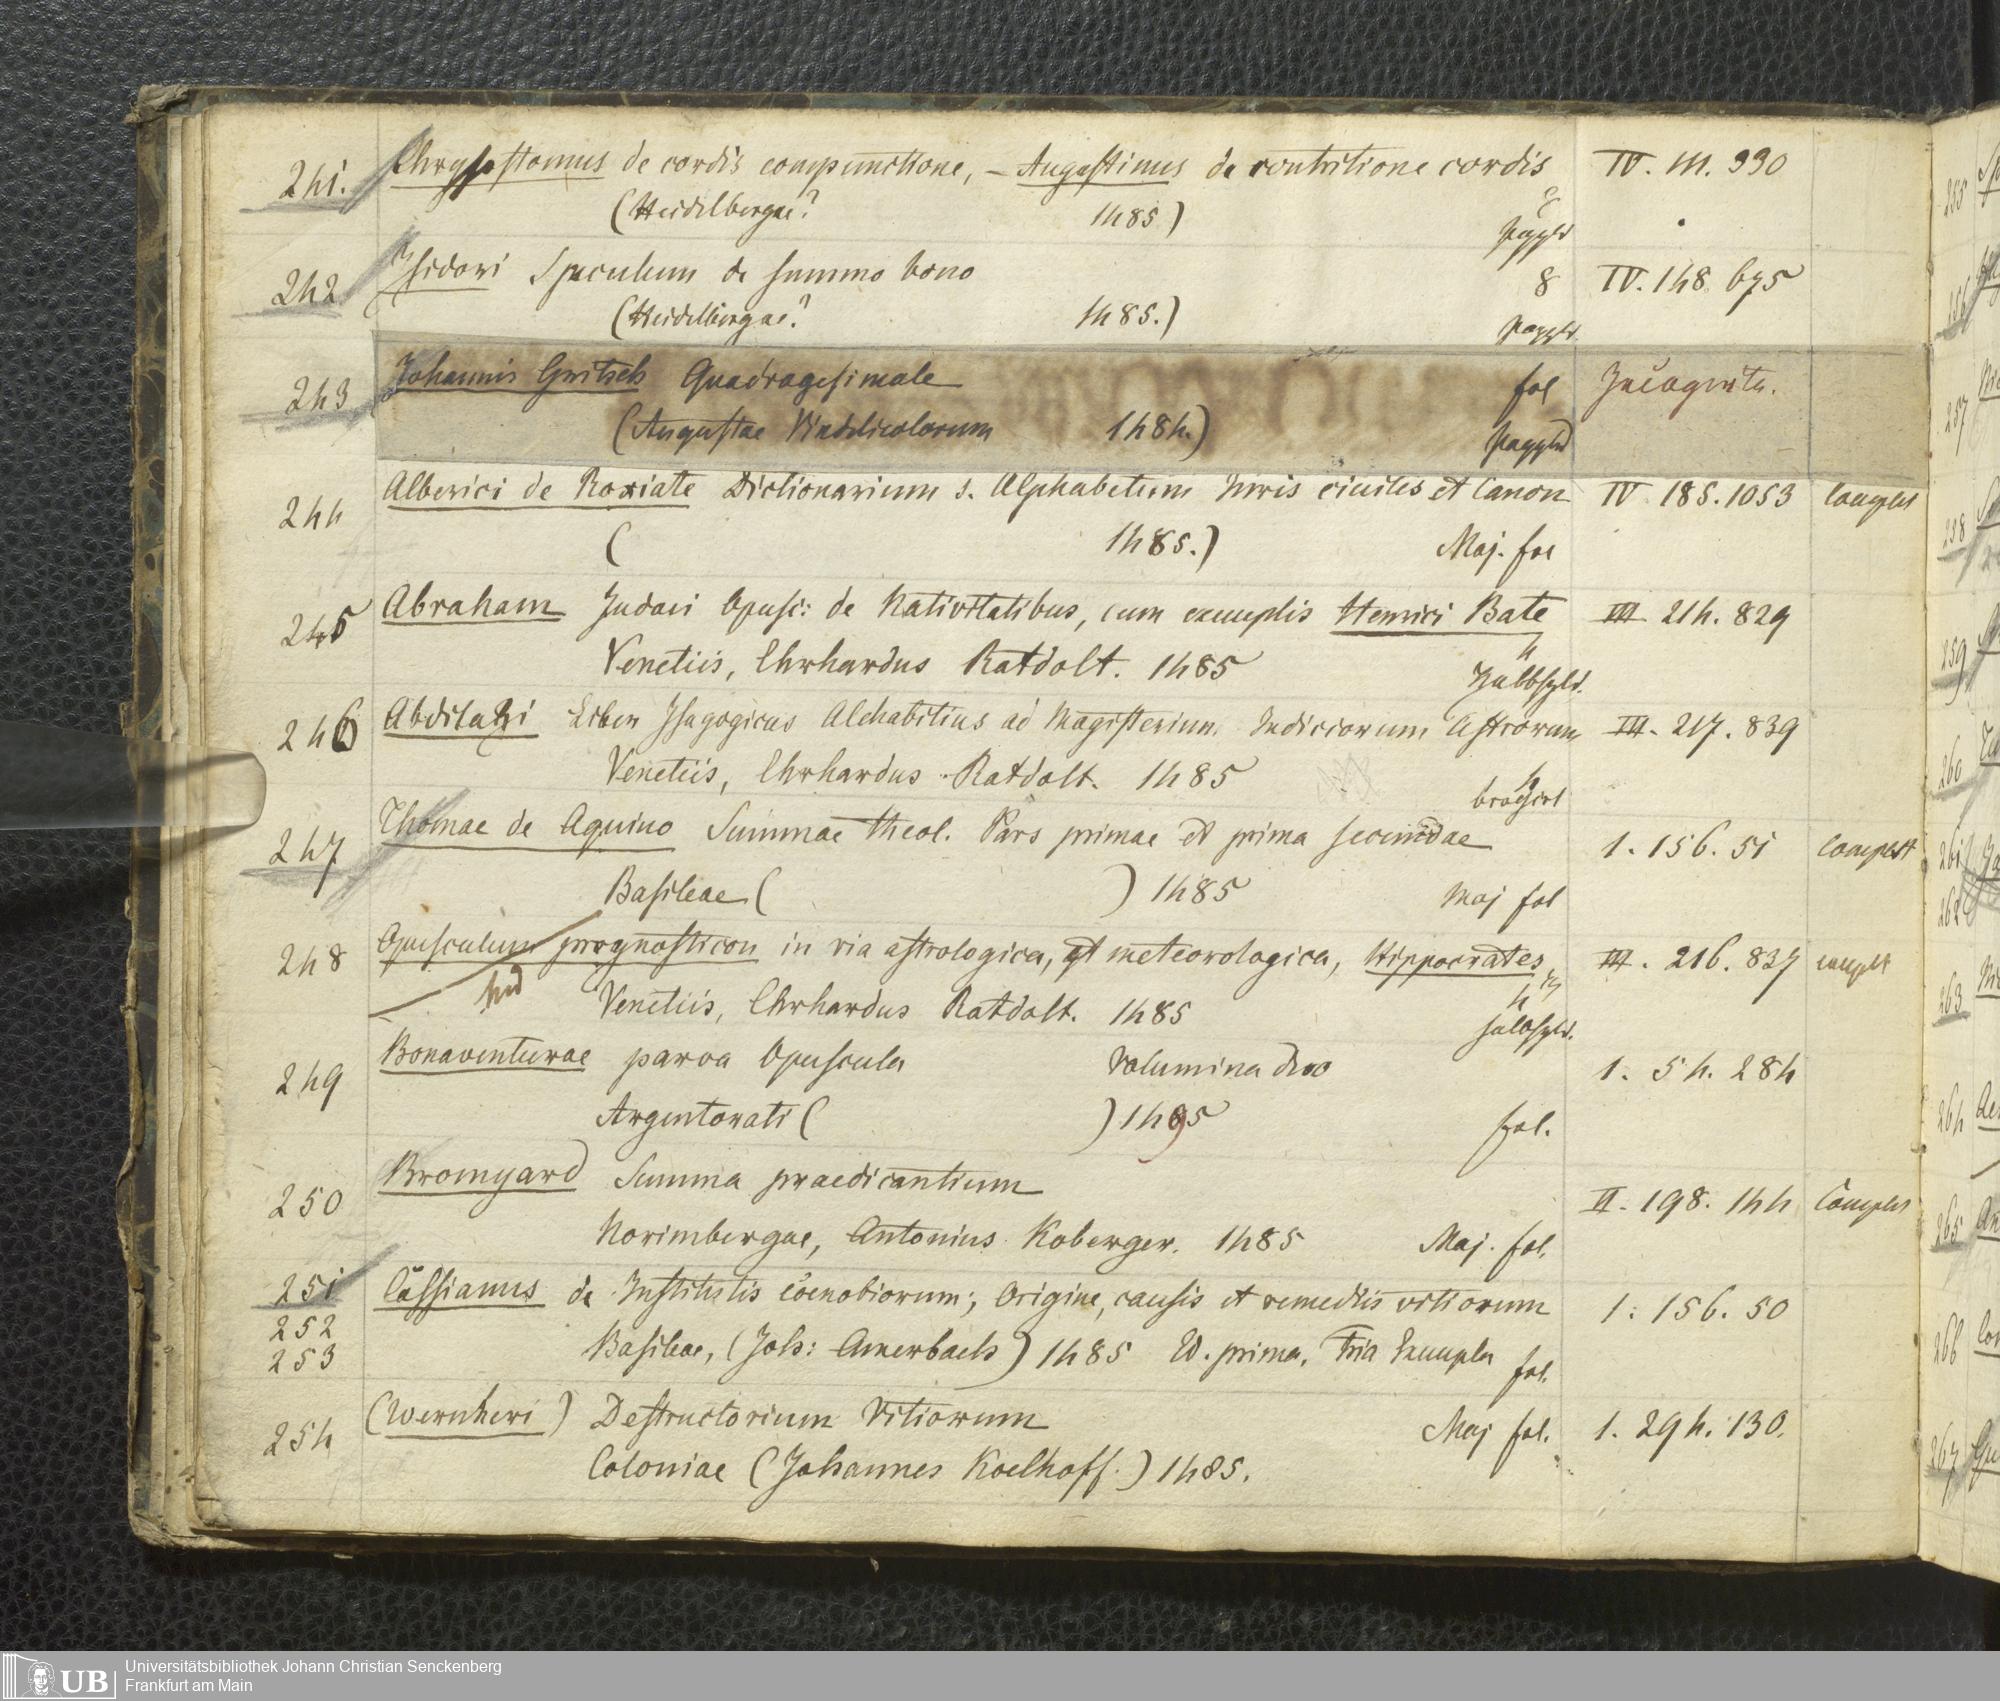 241. Chrysostomus de cordis compunctione, – Augustinus de contritione cordis IV. 111. 930
(Heidelbergae? 1485) 8
Pappbd
242 Isidori Speculum de summo bono 8 IV. 148. 675
(Heidelbergae? 1485.) Pappbd
243 Johannis Gritsch Quadragesimale fol Incognita.
(Augustae Vindelicolorum 1484.) Pappbd
244 Alberici de Roxiate Dictionarium s. Alphabetum Juris civiles et Canon IV 185. 1053 Complet
( 1485.) Maj. fol
245 Abraham Judaei Opusc: de Nativitatibus, cum exemplis Henrici Bate III. 214. 829
Venetiis, Ehrhardus Ratdolt. 1485 4
Halbfzbd.
246 Abdilazi Liber Isagogicus Alchabitius ad Magisterium Judiciorum Astrorum III. 217. 839
Venetiis, Ehrhardus Ratdolt. 1485 4
brosirt
247 Thomae de Aquino Summae theol. Pars primae et prima secundae 1. 156. 51 Complett
Basileae ( ) 1485 Maj fol
248 Opusculum prognosticon in via astrologica, et meteorologica, Hippocrates III. 216. 837 complet
Venetiis, Ehrhardus Ratdolt. 1485 4
halbfzbd.
249 Bonaventurae parva Opuscula Volumina duo 1. 54. 284
Argentorati ( ) 1495 fol.
250 Bromyard Summa praedicantium II. 198. 144 Complet
Norimbergae, Antonius Koberger. 1485 Maj. fol.
251 Cassianus de Institutis coenobiorum; Origine, causis et remediis vitiorum 1. 156. 50
252
253 Basileae, (Joh: Amerbach) 1485 Ed. prima. Tria Exempla fol.
254 (Wernheri) Destructorium Vitiorum Maj fol. 1. 294. 130.
Coloniae (Johannes Koelhoff.) 1485.
255
256
257
258
259
260
261
262
263
264
265
266
267
UB
Universitätsbibliothek Johann Christian Senckenberg
Frankfurt am Main